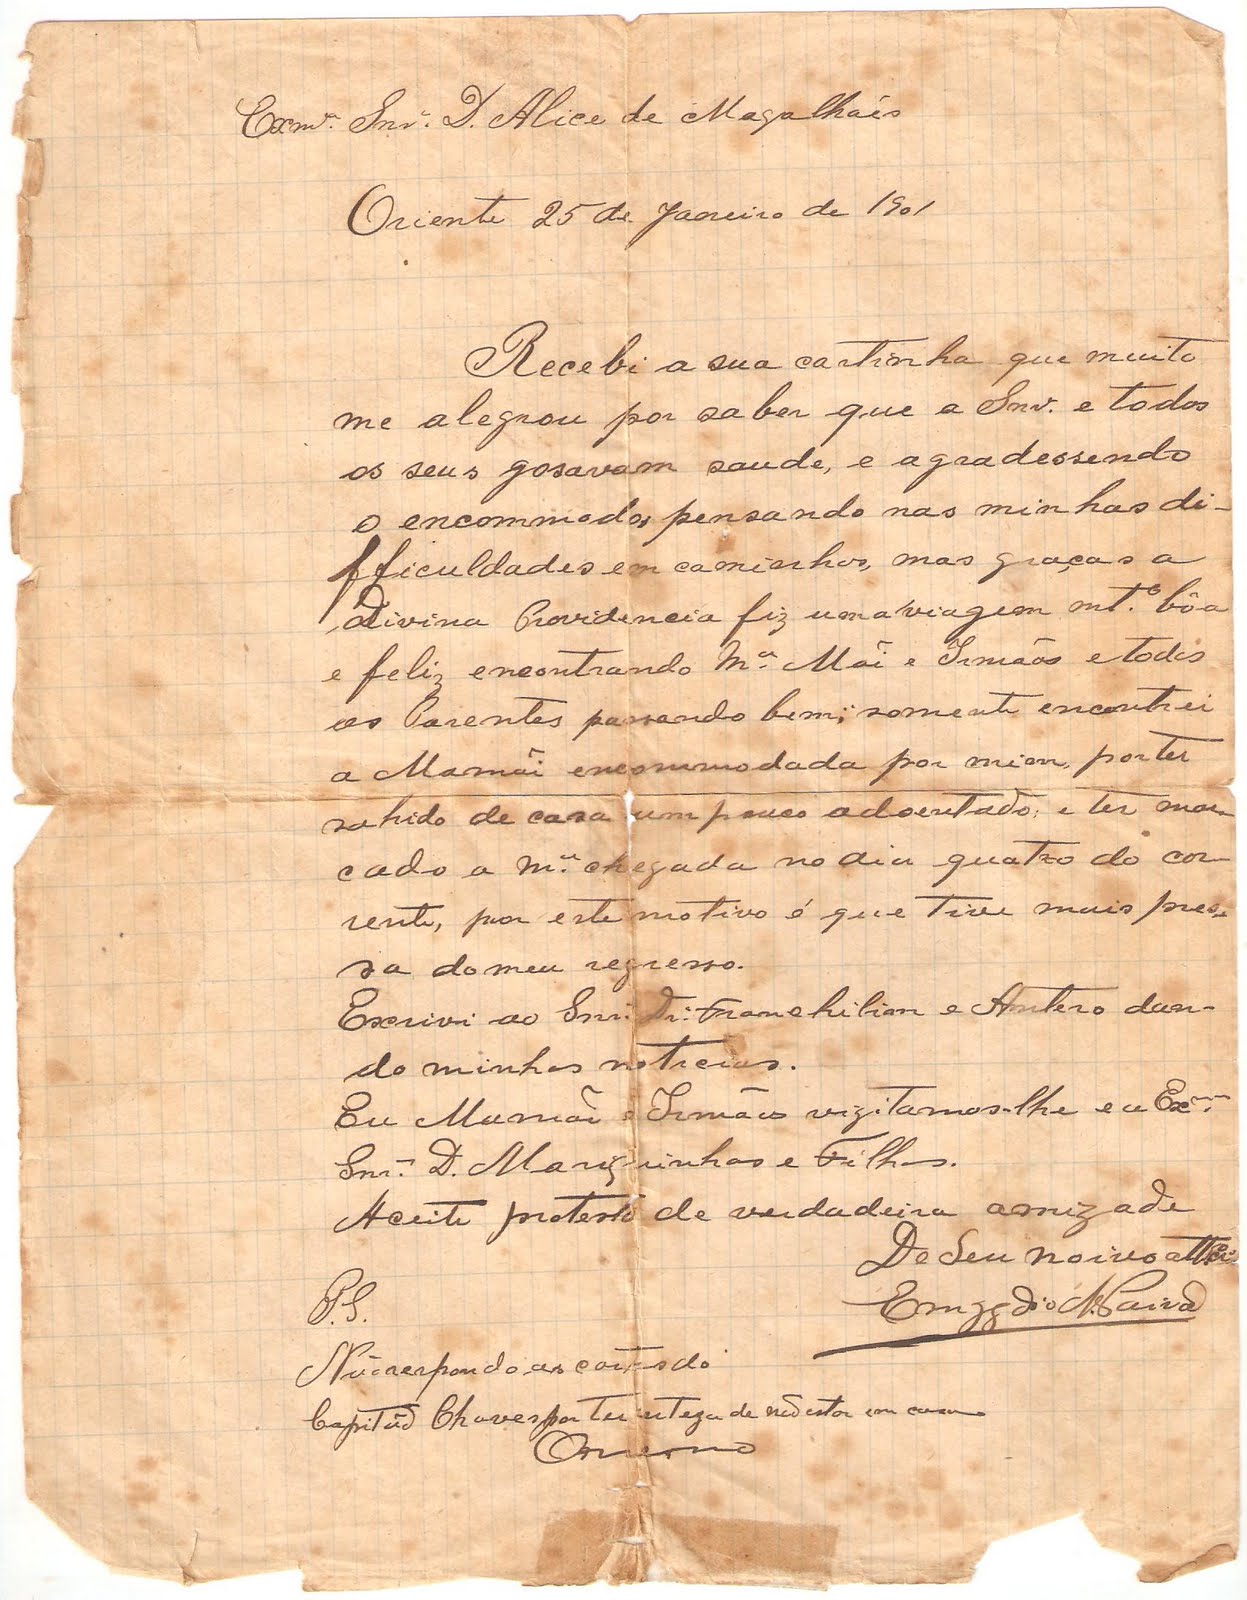 Exmª. Snrª. D. Alice de Magalhães
Oriente 25 de Janeiro de 1901
Recebi a sua cartinha que muito
me alegrou por saber que a Snrª. e todos
os seus gosavam saude, e agradessendo
o encommodo, pensando nas minhas di-
fficuldades em caminhos, mas graças a
Divina Providencia fiz uma viagem mtº. bôa
e feliz encontrando mª. Mãi e Irmãos e todos
os Parentes passando bem; somente encontrei
a Mamãi encommodada por mim, por ter
sahido de casa um pouco adoentado, e ter mar-
cado a mª. chegada no dia quatro do cor-
rente, por este motivo é que tive mais pres-
sa do meu regresso.
Escrivi ao Snr. Dr. e Antero dan-
do minhas noticias.
Eu Mamãi e Irmãos vizitamos-lhe e a Exmª.
Snrª. D. Mariquinhas e Filhos.
Aceite protesto de verdadeira amizade
De Seu noivo
Emygdio N. Paiva
P.S.
Não respondo as cartas do
Capitão Chaves por ter certeza de não estar em casa
O mesmo